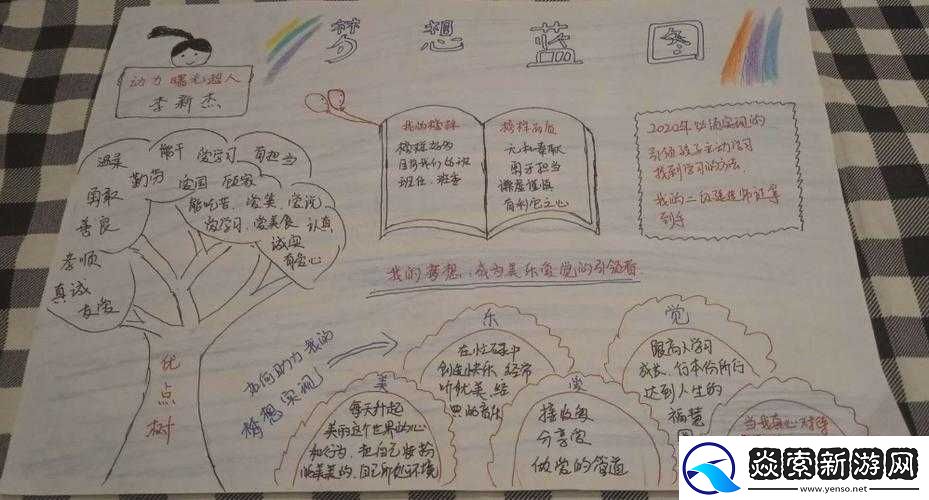 梦想蓝图
动力曙光超人
李新杰
温柔 能干 爱学习 有担当
勇敢 勤劳 爱国 顾家
善良 能吃苦、爱美、爱玩
爱学习、爱美食 认真
孝顺 诚实
真诚 有爱心
友爱
优
点
树
我的榜样
榜样为
班任、班委
榜样品质
无私奉献
勇于担当
谦虚谨慎
有利他之心
2022年必须实现的
引领孩子主动学习
找到学习的方法.
我的二级建造师证拿
到手
我的梦想:成为美乐爱觉的引领者
如何助力我的
梦想实现?
美
每天升起
美丽这个世界的心
和行为,把自己装扮
美美的,自己所处环境
乐
在忙碌中
创造快乐,经常
听优美、经
典的音乐
爱
接收爱
分享爱
做爱的管道
觉
跟高人学习
成长、行本份所行
达到人生的
福慧
当我真心对待
焱索新游网
www.yenso.net